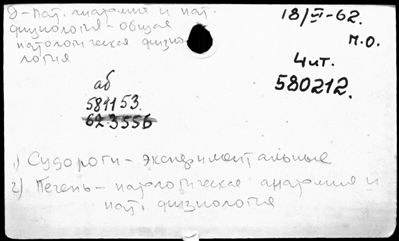 9 - пат. анатомия и пат.
физиология - общая
патологическая физио-
логия
18/VI-62.
М.О.
Чит.
580212.
аб
581153.
623556
1) Судороги - экспериментальные
2) Печень - патологическая анатомия и
пат. физиология